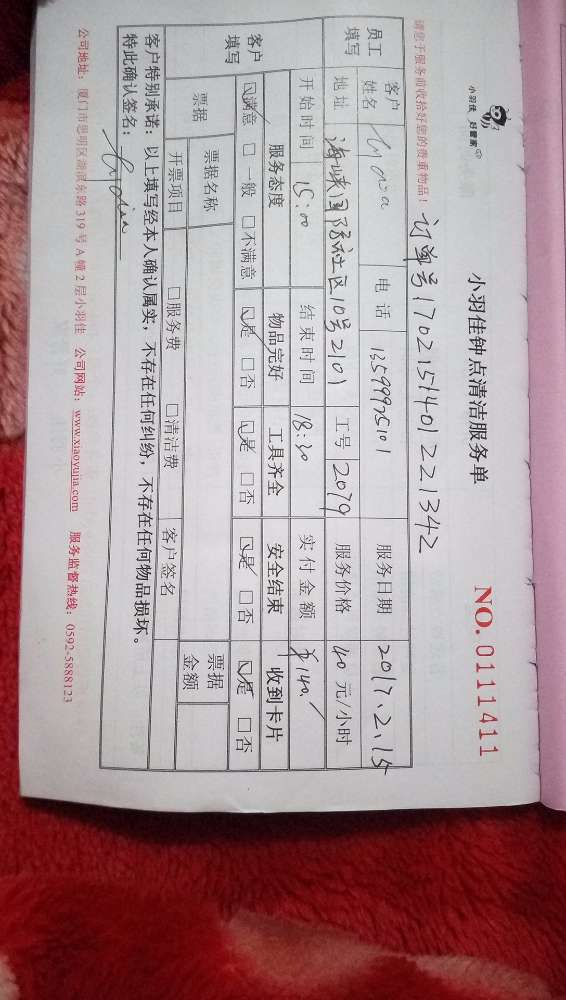 小羽佳 好管家
小羽佳钟点清洁服务单
NO. 0111411
请您于服务前收拾好您的贵重物品!
订单号1702151401221342
员工填写 客户姓名 电话 13599975101 服务日期 2017.2.15
地址 海峡国际社区10号2101 工号 2079 服务价格 40 元/小时
开始时间 15:00 结束时间 18:30 实付金额 ¥140.
客户填写 服务态度 物品完好 工具齐全 安全结束 收到卡片
☑满意 □一般 □不满意 ☑是 □否 ☑是 □否 ☑是 □否 ☑是 □否
票据 票据名称 客户签名 票据金额
开票项目 □服务费 □清洁费
客户特别承诺:以上填写经本人确认属实,不存在任何纠纷,不存在任何物品损坏。
特此确认签名:
公司地址:厦门市思明区湖滨东路 319 号 A 幢 2 层小羽佳 公司网站:www.xiaoyujia.com 服务监督热线:0592-5888123